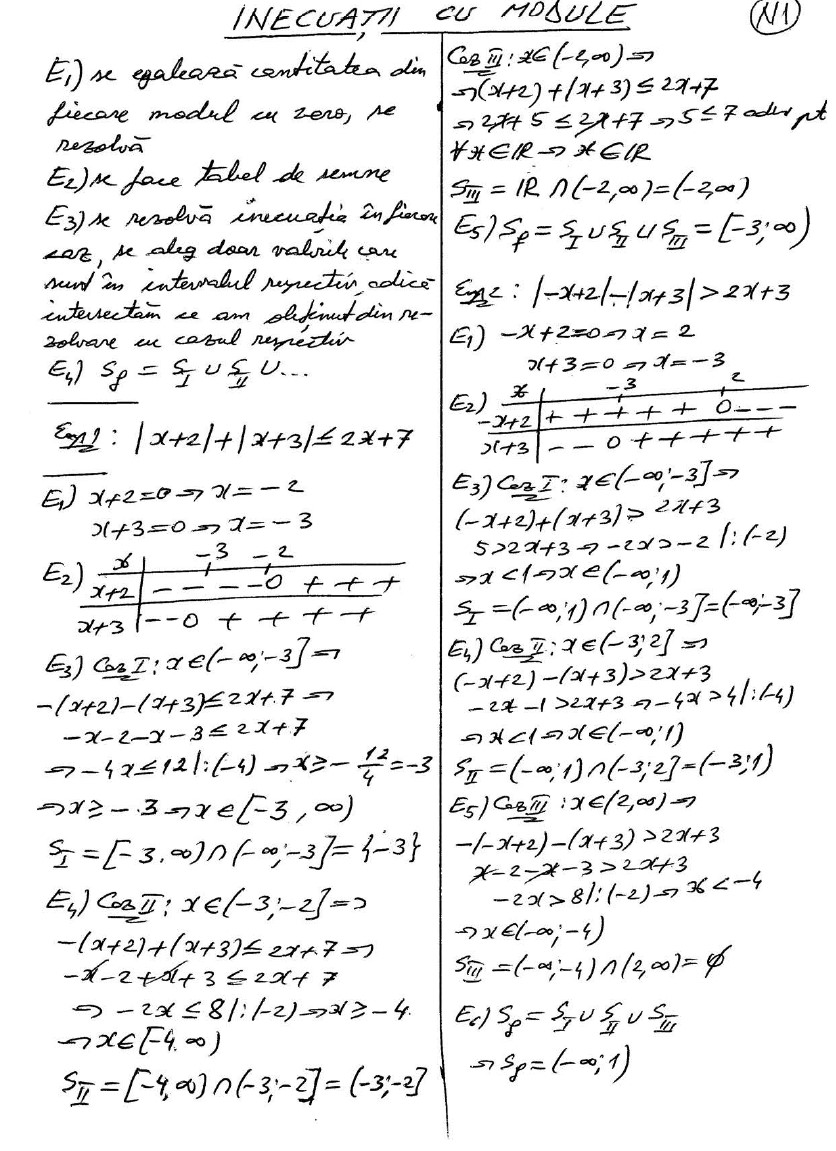 INECUAȚII CU MODULE
N1
E₁) se egalează cantitatea din
fiecare modul cu zero, se
rezolvă
E₂) se face tabel de semne
E₃) se rezolvă inecuația în fiecare
caz, se aleg doar valorile care
sunt în intervalul respectiv, adică
intersectăm ce am obținut din re-
zolvare cu cazul respectiv
E₄) S_f = S_I ∪ S_II ∪ ...
Exp1 : |x+2|+|x+3| ≤ 2x+7
E₁) x+2=0 ⇒ x = -2
x+3=0 ⇒ x = -3
E₂) x | -3 -2
x+2 | - - - - 0 + + +
x+3 | - - 0 + + + +
E₃) Caz I : x∈(-∞;-3] ⇒
-(x+2)-(x+3) ≤ 2x+7 ⇒
-x-2-x-3 ≤ 2x+7
⇒ -4x ≤ 12 |:(-4) ⇒ x ≥ -12/4 = -3
⇒ x ≥ -3 ⇒ x∈[-3, ∞)
S_I = [-3, ∞) ∩ (-∞;-3] = {-3}
E₄) Caz II : x∈(-3;-2] ⇒
-(x+2)+(x+3) ≤ 2x+7 ⇒
-x-2+x+3 ≤ 2x+7
⇒ -2x ≤ 8 |:(-2) ⇒ x ≥ -4
⇒ x∈[-4, ∞)
S_II = [-4, ∞) ∩ (-3;-2] = (-3;-2]
Caz III : x∈(-2,∞) ⇒
⇒ (x+2)+(x+3) ≤ 2x+7
⇒ 2x+5 ≤ 2x+7 ⇒ 5 ≤ 7 adev pt
∀x∈ℝ ⇒ x∈ℝ
S_III = ℝ ∩ (-2,∞) = (-2,∞)
E₅) S_f = S_I ∪ S_II ∪ S_III = [-3;∞)
Exp2 : |-x+2|-|x+3| > 2x+3
E₁) -x+2=0 ⇒ x = 2
x+3=0 ⇒ x = -3
E₂) x | -3 2
-x+2 | + + + + + 0 - - -
x+3 | - - 0 + + + + +
E₃) Caz I : x∈(-∞;-3] ⇒
(-x+2)+(x+3) > 2x+3
5 > 2x+3 ⇒ -2x > -2 |:(-2)
⇒ x < 1 ⇒ x∈(-∞;1)
S_I = (-∞;1) ∩ (-∞;-3] = (-∞;-3]
E₄) Caz II : x∈(-3;2] ⇒
(-x+2)-(x+3) > 2x+3
-2x-1 > 2x+3 ⇒ -4x > 4 |:(-4)
⇒ x < 1 ⇒ x∈(-∞;1)
S_II = (-∞;1) ∩ (-3;2] = (-3;1)
E₅) Caz III : x∈(2,∞) ⇒
-(-x+2)-(x+3) > 2x+3
x-2-x-3 > 2x+3
-2x > 8 |:(-2) ⇒ x < -4
⇒ x∈(-∞;-4)
S_III = (-∞;-4) ∩ (2,∞) = ∅
E₆) S_f = S_I ∪ S_II ∪ S_III
⇒ S_f = (-∞;1)